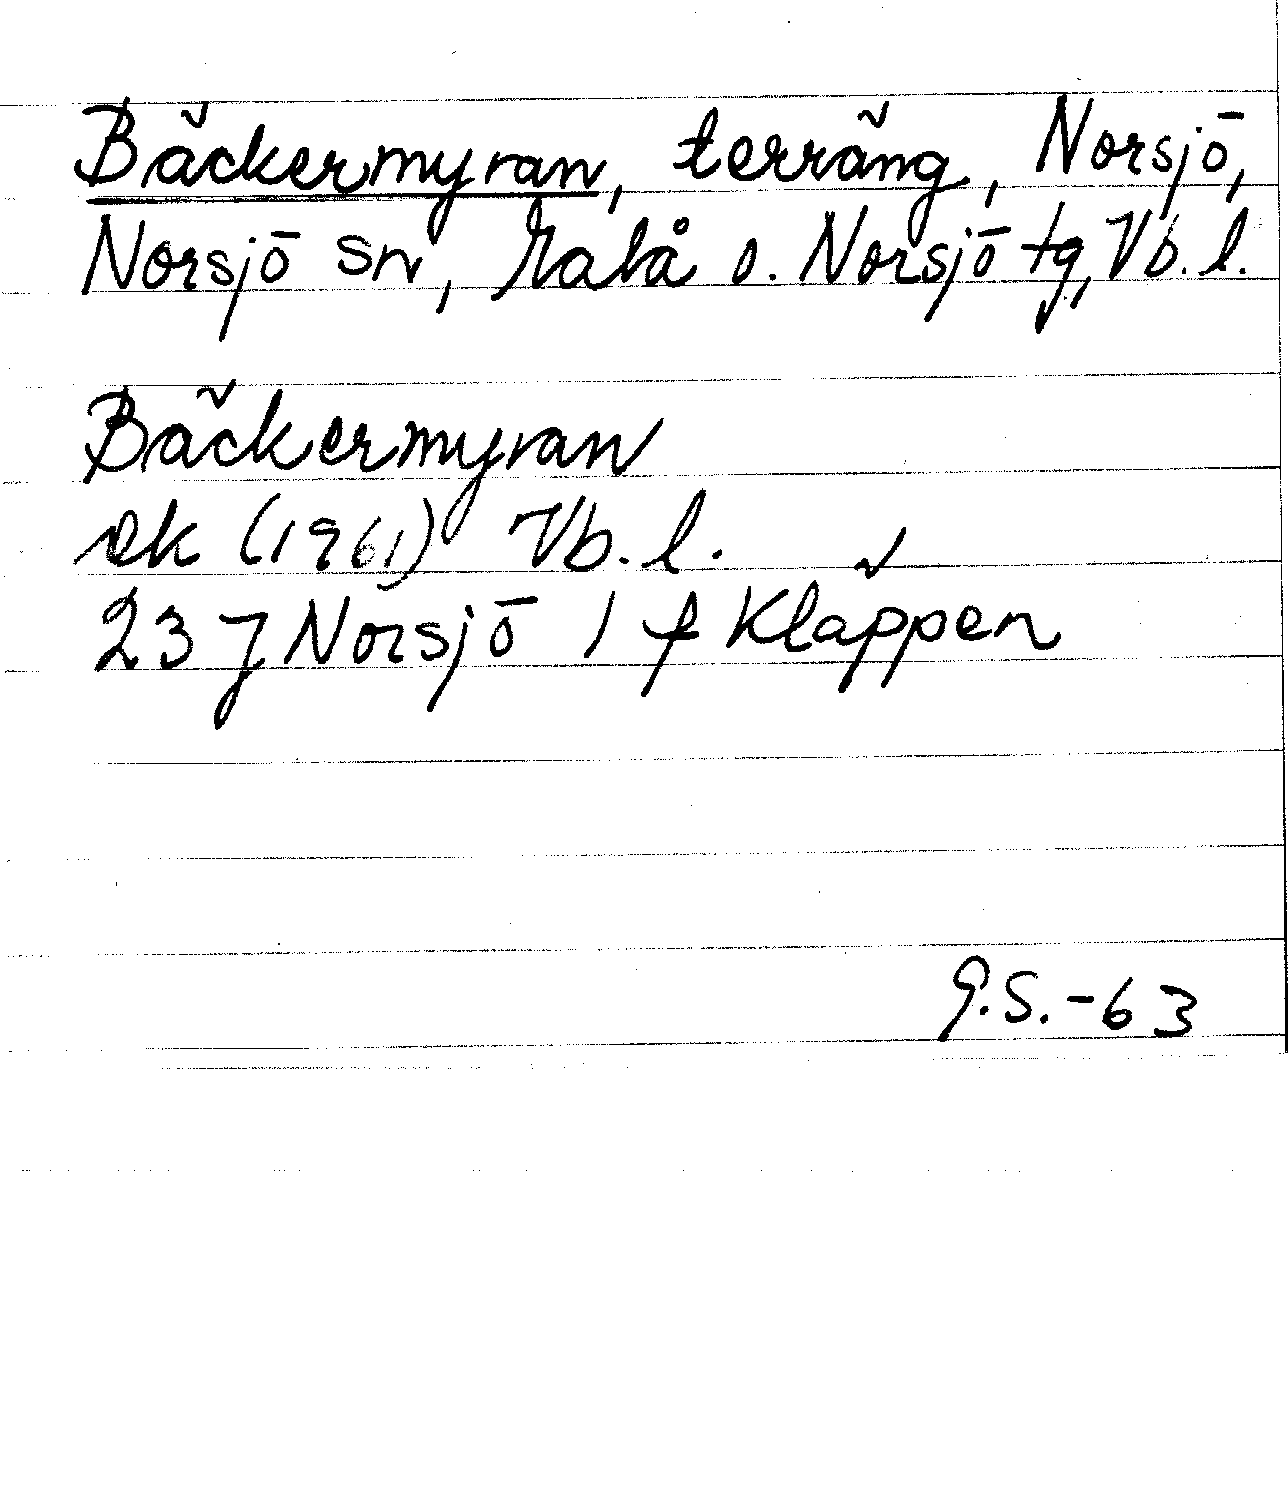 Bäckermyran, terräng, Norsjö,
Norsjö sn, Malå o. Norsjö tg, Vb. l.
Bäckermyran
ek (1961) Vb. l.
23 J Norsjö 1 f Kläppen
G.S.-63